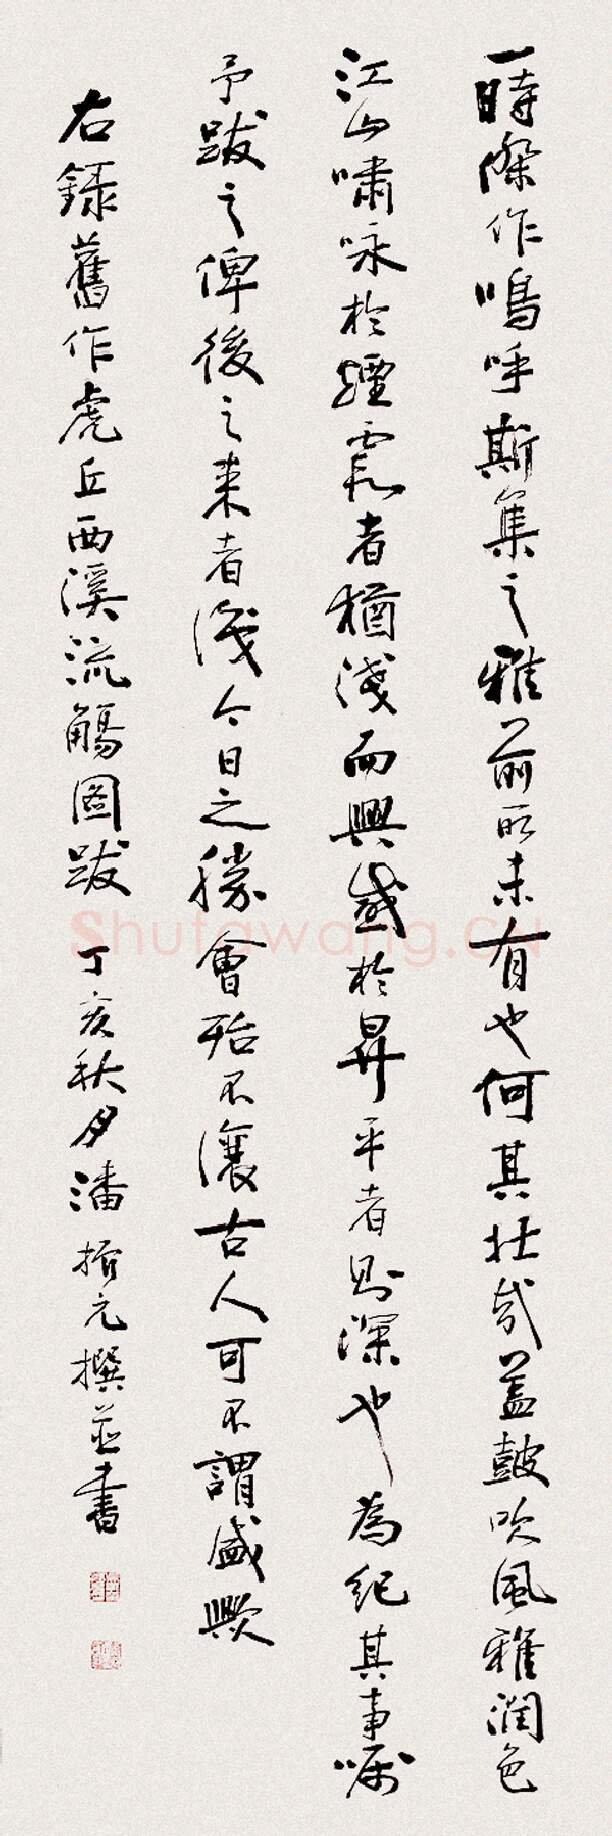 一時傑作嗚呼斯集之雅前所未有也何其壯哉蓋鼓吹風雅潤色
江山嘯咏於煙霞者猶淺而興感於昇平者則深也為紀其事囑
予跋之俾後之來者識今日之勝會殆不讓古人可不謂盛歟
右録舊作虎丘西溪流觴圖跋 丁亥秋夕潘振元撰並書
Shufawang.CN